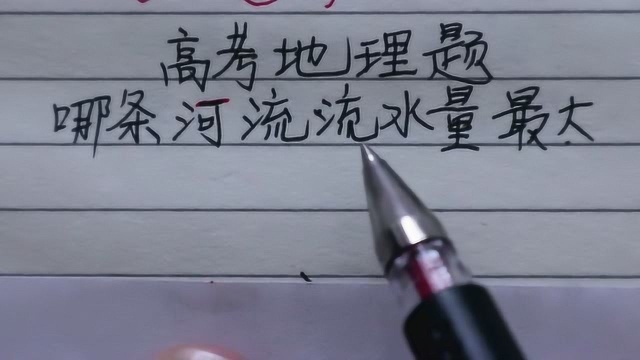 高考地理题
哪条河流流水量最大